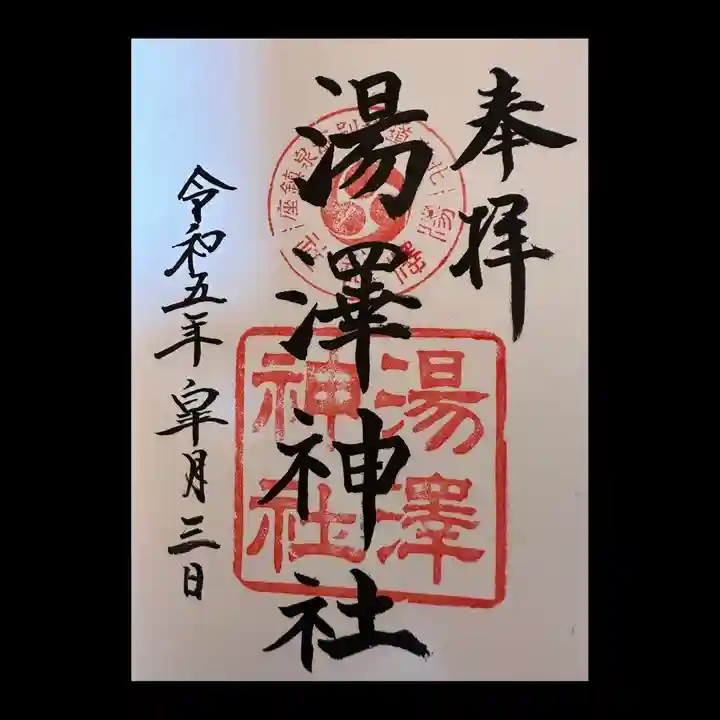 奉拝
湯澤神社
令和五年皐月三日
湯澤
神社